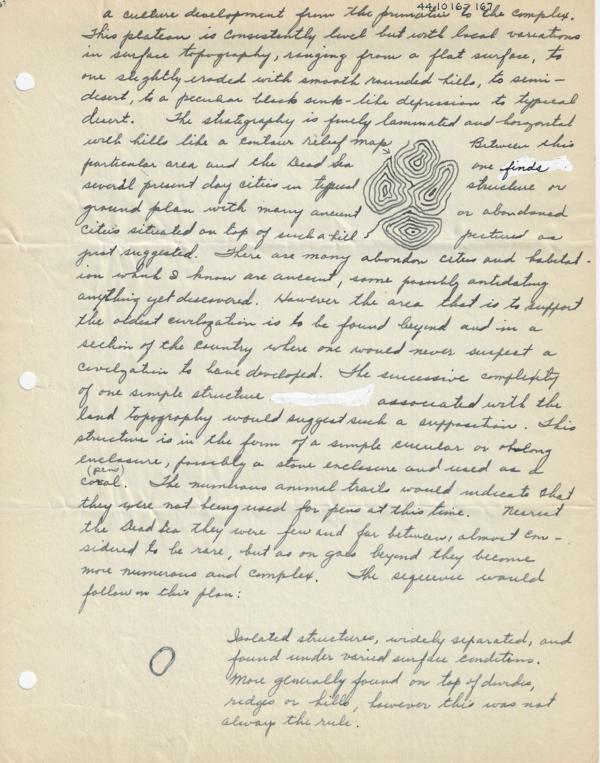 44,10 167 167
a culture development from the primative to the complex.
This plateau is consistently level but with local variations
in surface topography, ringing from a flat surface, to
one slightly eroded with smooth rounded hills, to semi-
desert, to a peculiar black sink-like depression to typical
desert. The stratigraphy is finely laminated and horizontal
with hills like a contour relief map. Between this
particular area and the Dead Sea one finds
several present day cities in typical structure or
ground plan with many ancient or abandoned
cities situated on top of such a hill pictured as
just suggested. There are many abandon cities and habitat-
ion which I know are ancient, some possibly antidating
anything yet discovered. However the area that is to support
the oldest civilization is to be found beyond and in a
section of the country where one would never suspect a
civilzation to have developed. The successive complexity
of one simple structure associated with the
land topography would suggest such a supposition. This
structure is in the form of a simple circular or oblong
enclosure, possibly a stone enclosure and used as a
(pens)
coral. The numerous animal trails would indicate that
they were not being used for pens at this time. Nearest
the Dead Sea they were few and far between, almost con-
sidered to be rare, but as on goes beyond they become
more numerous and complex. The sequence would
follow on this plan:
Isolated structures, widely separated, and
found under varied surface conditons.
More generally found on top of divides,
ridges or hills, however this was not
always the rule.